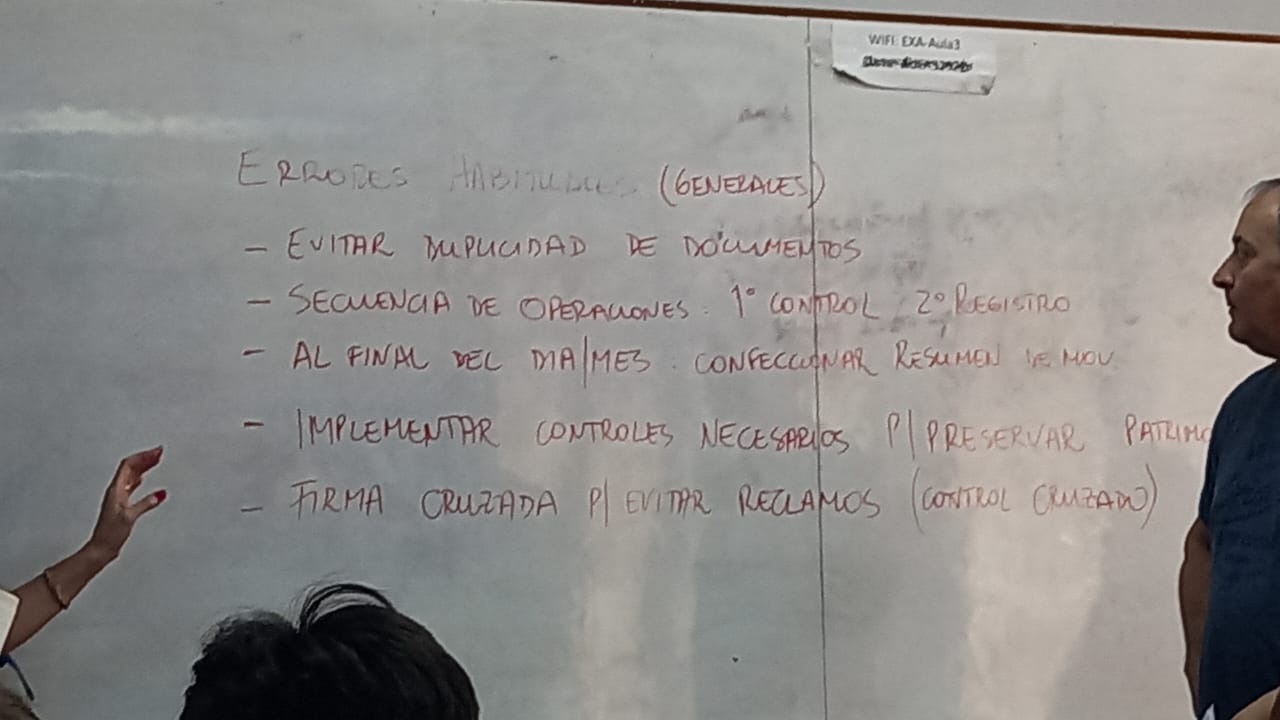 WIFI: EXA-Aula3
ERRORES HABITUALES (GENERALES)
- EVITAR DUPLICIDAD DE DOCUMENTOS
- SECUENCIA DE OPERACIONES: 1° CONTROL 2° REGISTRO
- AL FINAL DEL DIA/MES: CONFECCIONAR RESUMEN DE MOV.
- IMPLEMENTAR CONTROLES NECESARIOS P/ PRESERVAR PATRIMO
- FIRMA CRUZADA P/ EVITAR RECLAMOS (CONTROL CRUZADO)